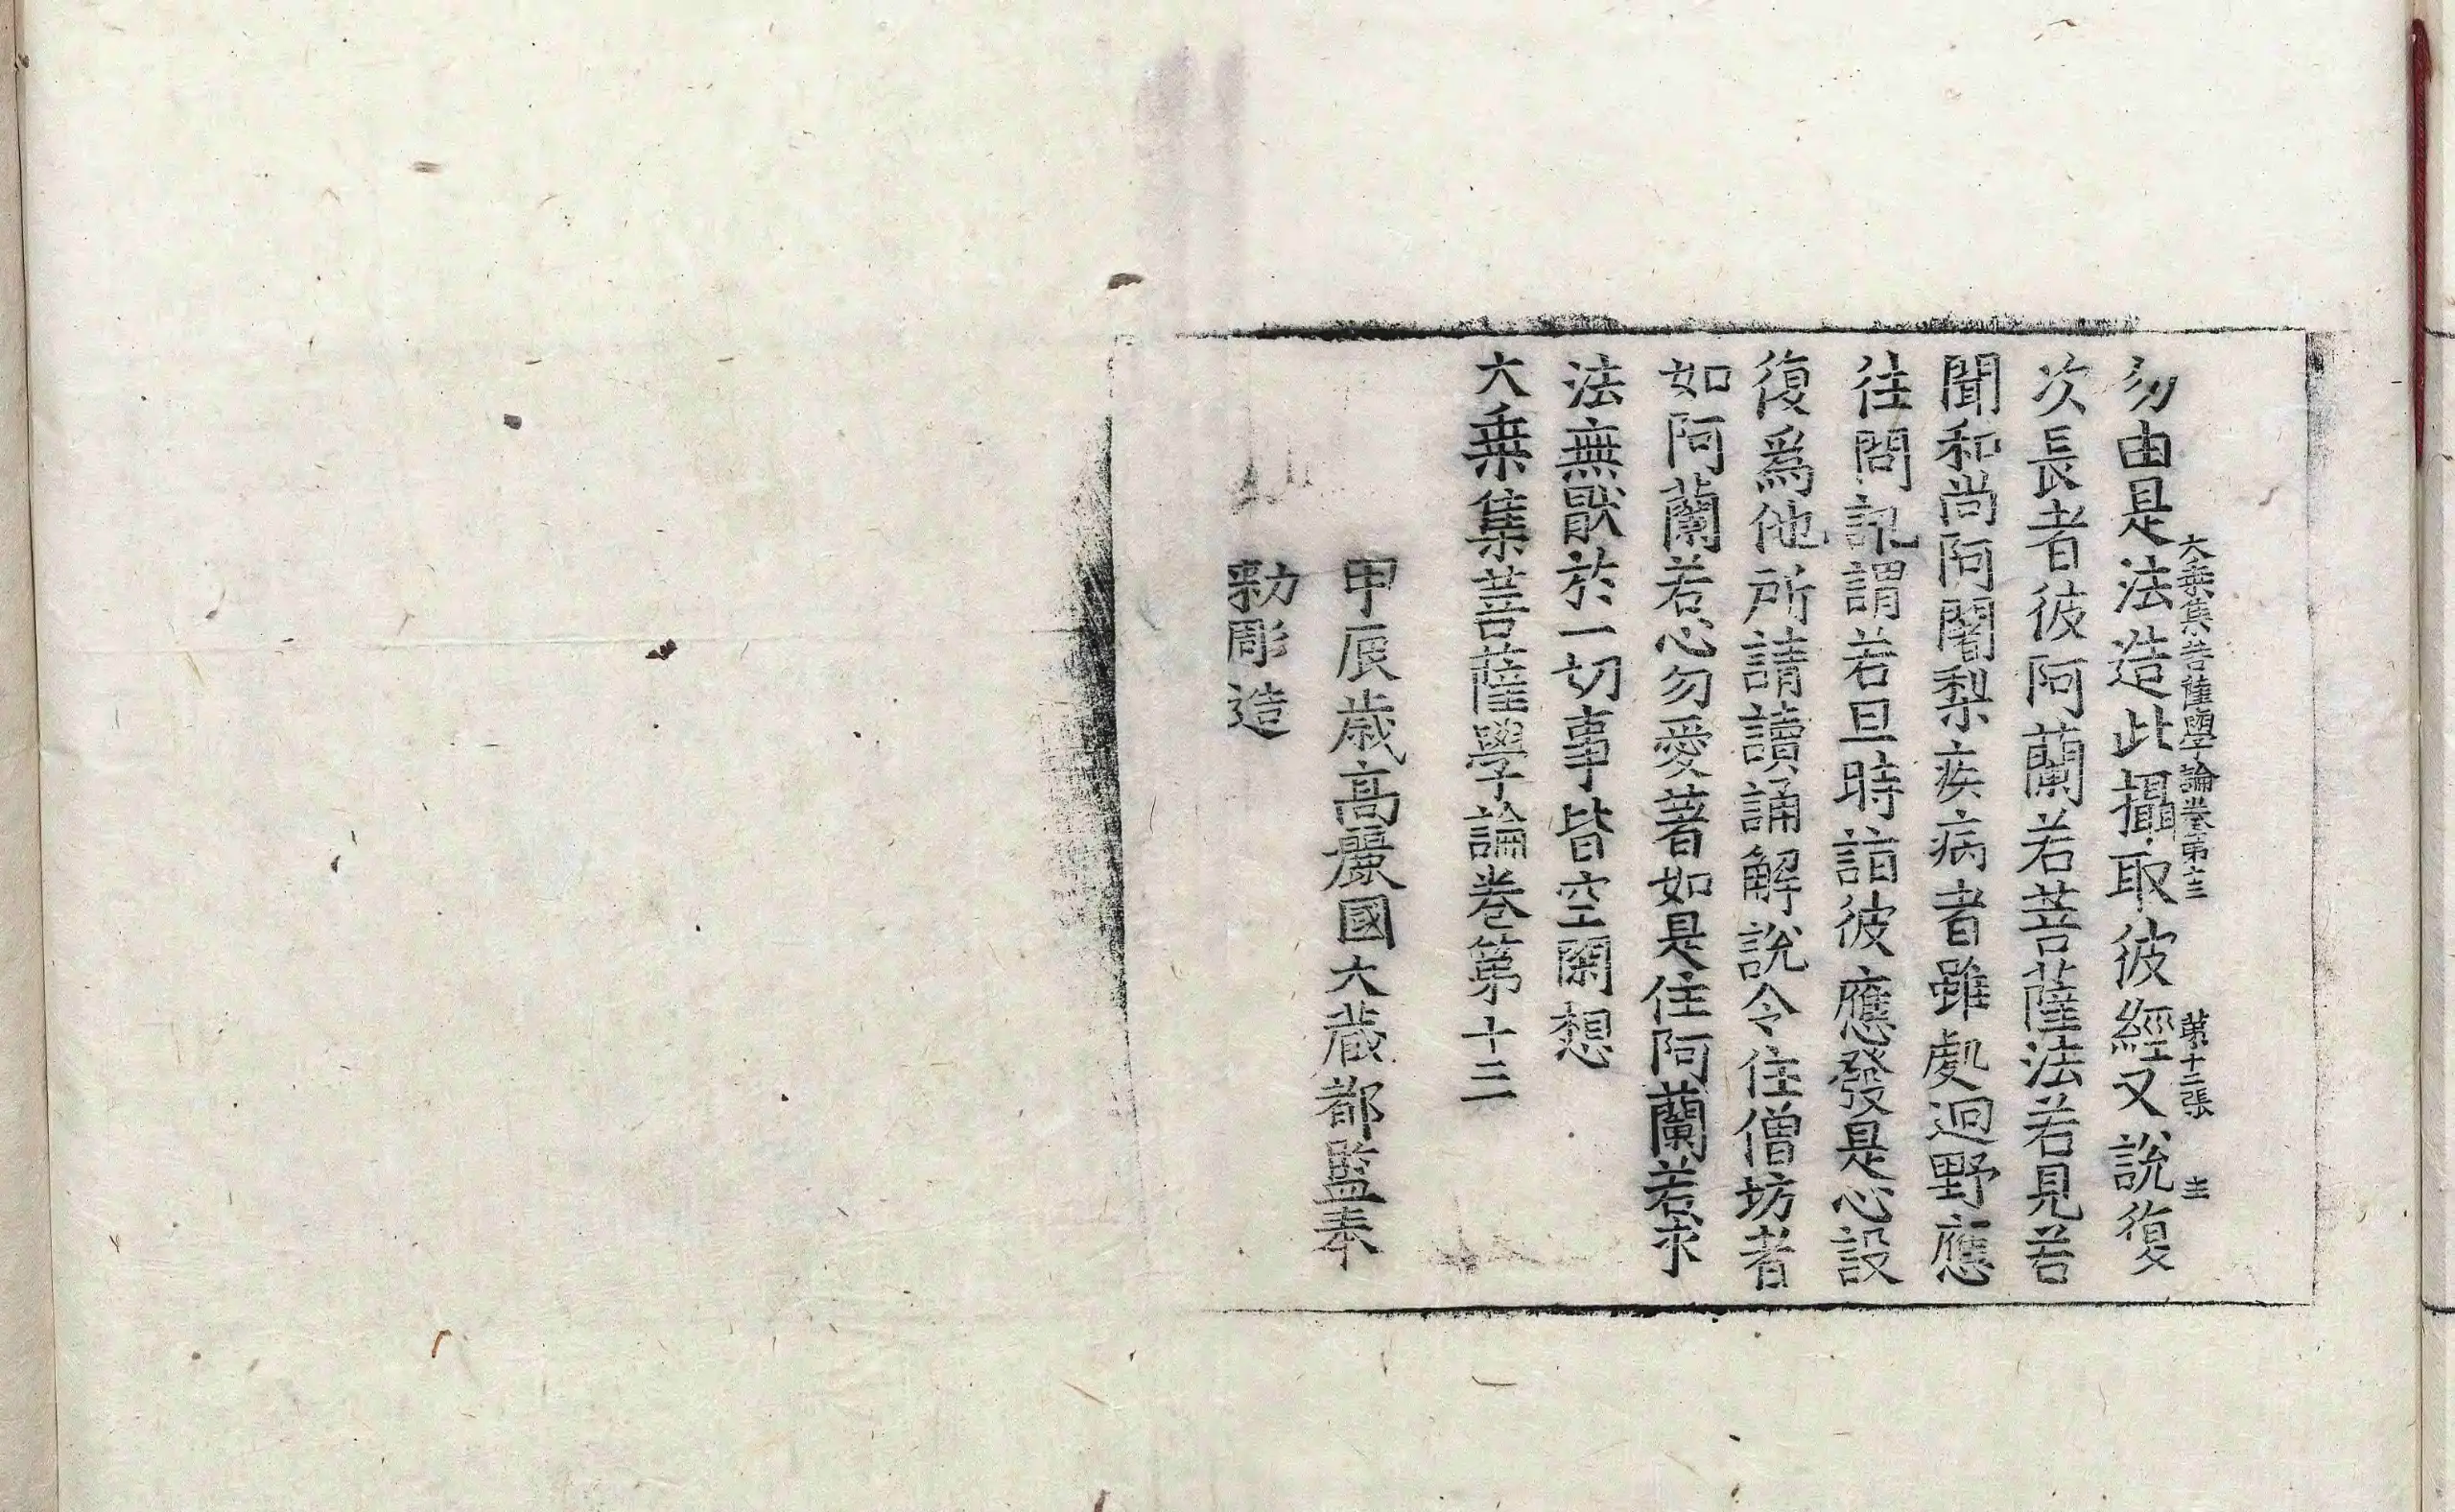 大乗集菩薩學論卷第十三 第十二張 圭
勿由是法造此攝取彼經又說復
次長者彼阿蘭若菩薩法若見若
聞和尚阿闍梨疾病者雖處迥野應
往問訊謂若旦時詣彼應發是心設
復爲他所請讀誦解說令住僧坊者
如阿蘭若心勿愛著如是住阿蘭若求
法無猒於一切事皆空閑想
大乗集菩薩學論卷第十三
甲辰歳高麗國大藏都監奉
勑彫造